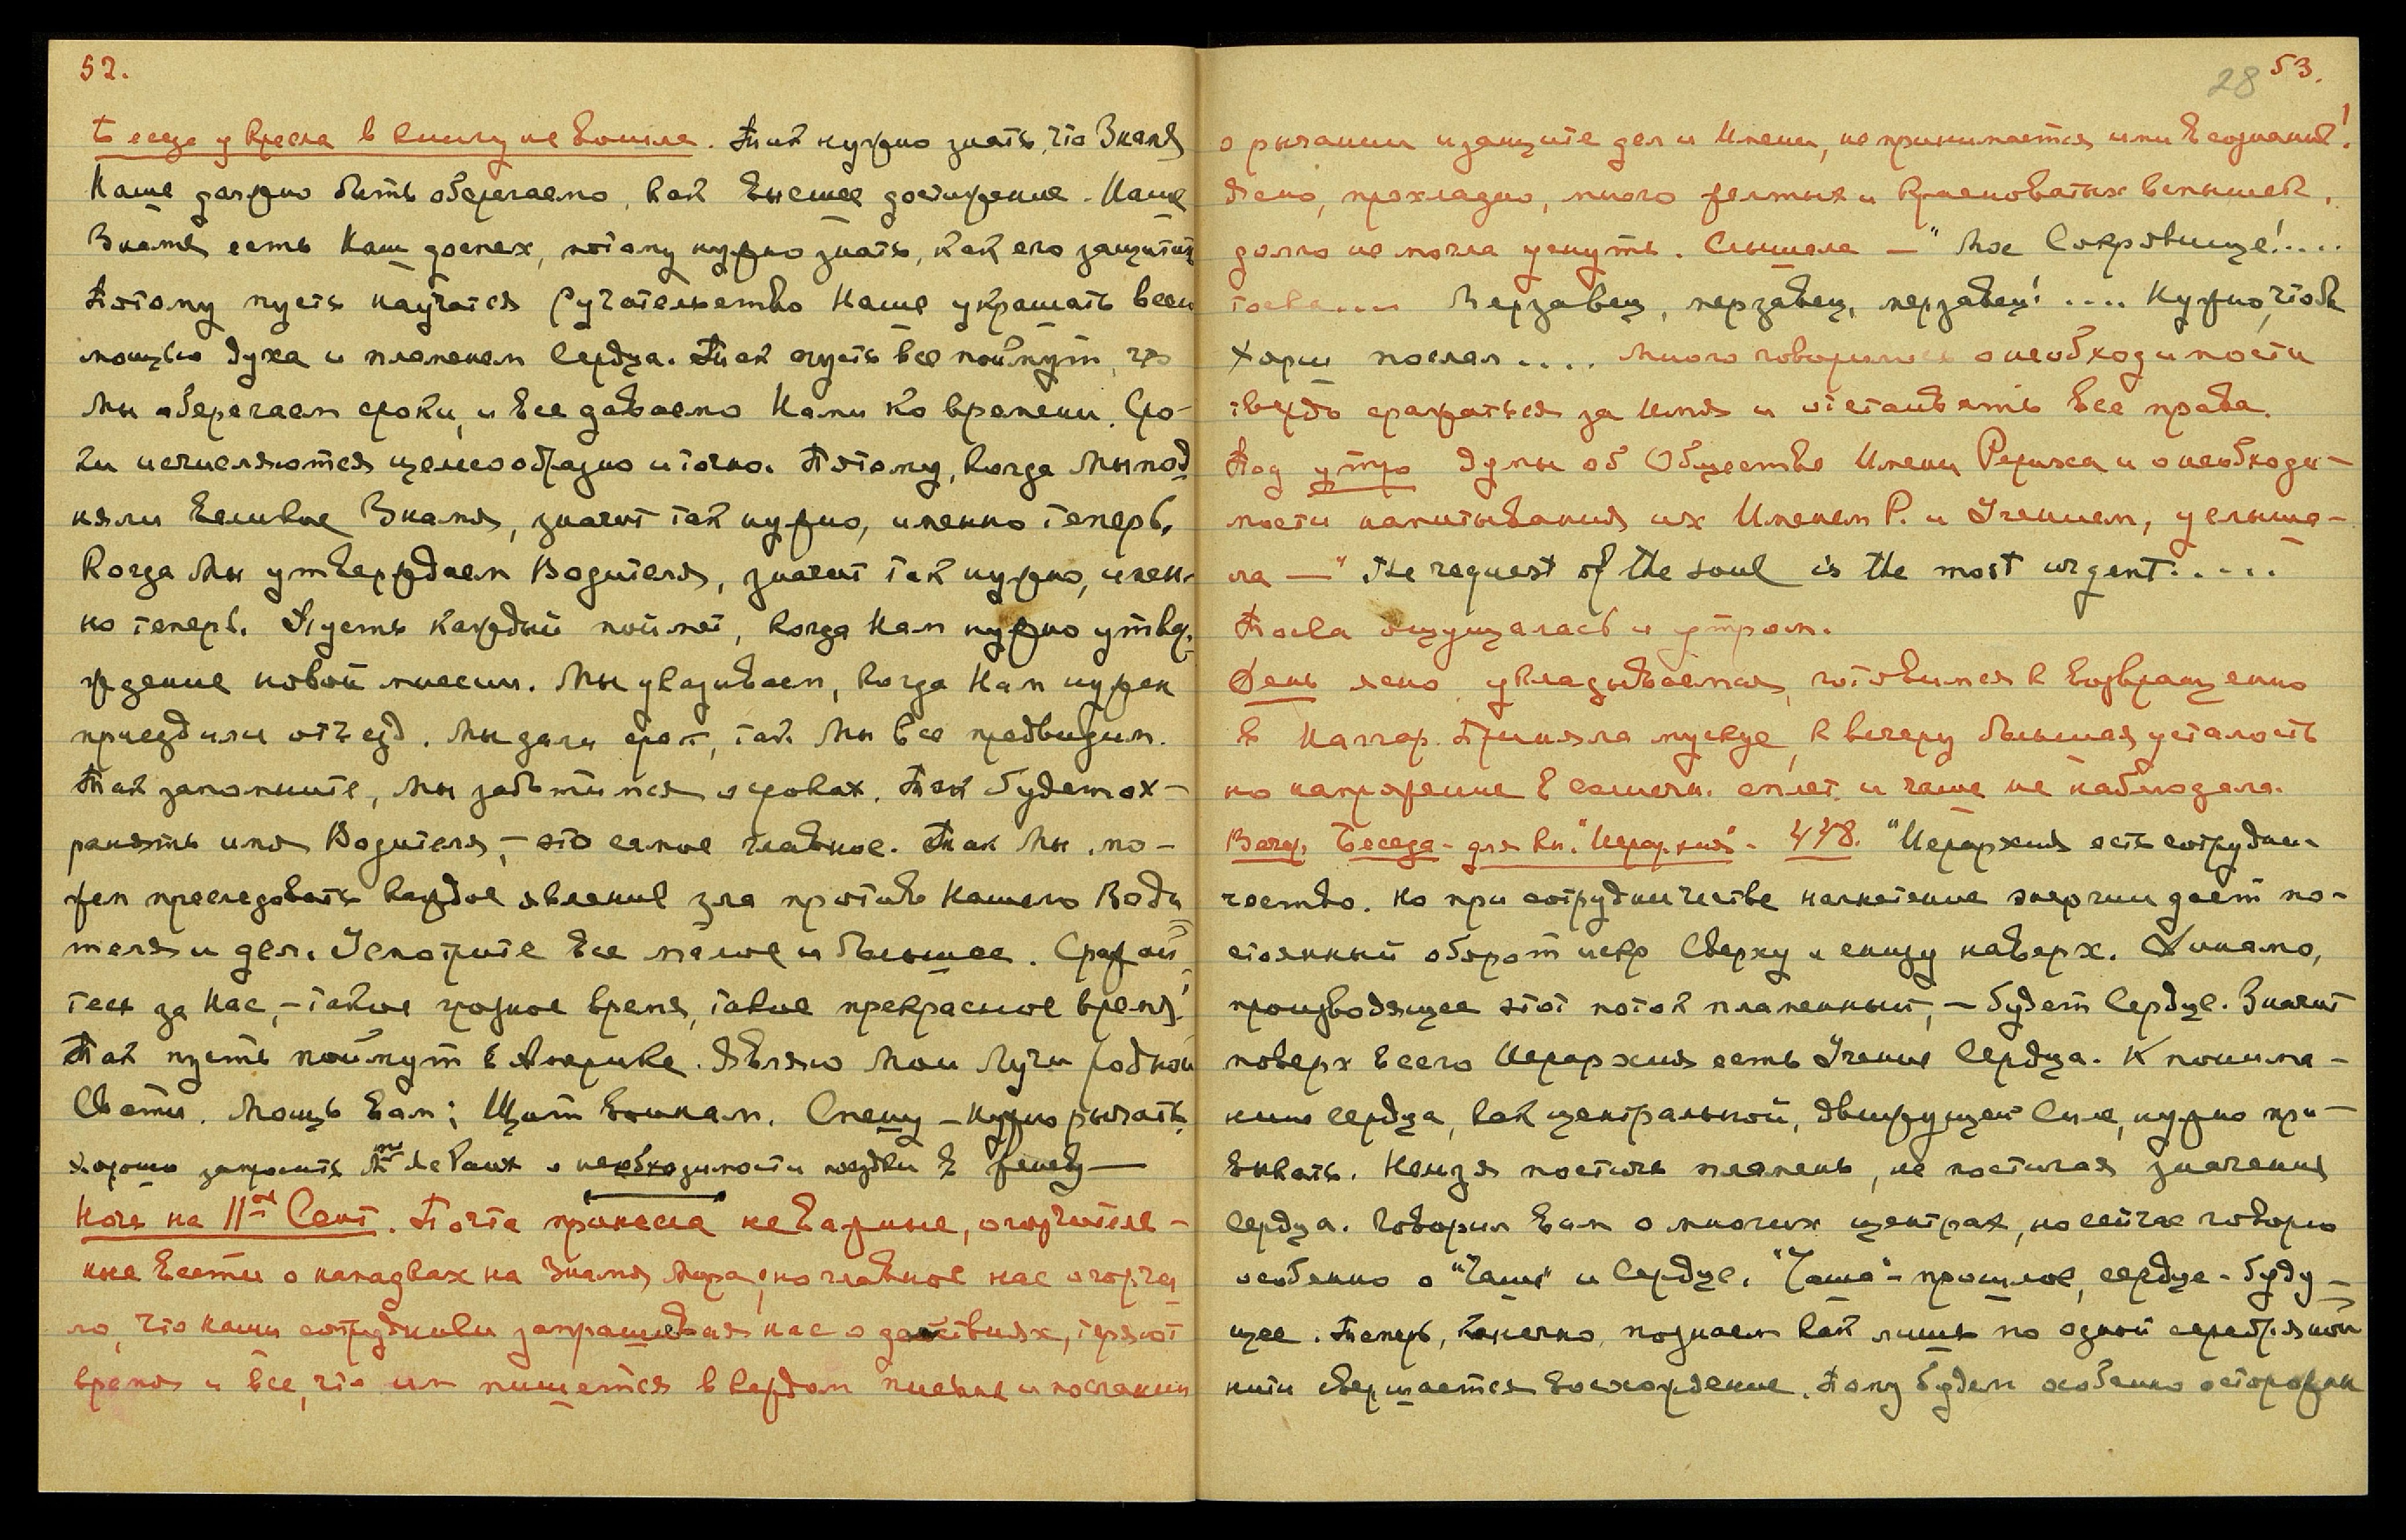 52.
Беседа у кресла в книгу не вошла. Так нужно знать, что Знамя
Наше должно быть оберегаемо, как высшее достижение. Наше
Знамя есть Наш доспех, потому нужно знать, как его защитить
Потому пусть научатся Ручательство Наше украшать всею
мощью духа и пламенем сердца. Так пусть все поймут, что
Мы оберегаем сроки, и все даваемо Нами ко времени. Сро-
ки исчисляются целесообразно и точно. Потому, когда Мы под
няли великое Знамя, значит так нужно, именно теперь.
Когда Мы утверждаем Водителя, значит так нужно, имен-
но теперь. Пусть каждый поймет, когда Нам нужно утвер-
ждение новой миссии. Мы указываем, когда Нам нужен
приезд или отъезд. Мы дали срок, так Мы все предвидим.
Так запомните, Мы заботимся о сроках. Так будет ох-
ранять имя Водителя, – это самое главное. Так Мы мо-
жем преследовать каждое явление зла против Нашего Води
теля и дел. Усмотрите все малое и большее. Сражай
тесь за Нас, – такое грозное время, такое прекрасное время!
Так пусть поймут в Америке. Являю Мои Лучи родной
Свати. Мощь вам; Щит воинам. Спешу – нужно рычать.
хорошо запросить о необходимости поездки в Женеву —
Ночь на 11ое Сент. Почта принесла неважные, огорчитель-
ные вести о нападках на Знамя Мира, но главное нас огорчи
ло, что наши сотрудники запрашивая нас о действиях, теряют
время и все, что им пишется в каждом письме и послании
28 53.
о рычании и защите дел и Имени, не принимается ими в сознание!
Ясно, прохладно, много желтых и красноватых вспышек,
долго не могла уснуть. Слышала — "Мое Сокровище!....
тоска.... Мерзавец, мерзавец, мерзавец! .... Нужно, чтобы
Хорш послал.... Много говорилось о необходимости
твердо сражаться за Имя и отстаивать все права.
Под утро думы об Обществе Имени Рериха и о необходи-
мости напитывания их Именем Р. и Учением, услыша-
ла — "The request of the soul is the most urgent.....
Тоска ощущалась и утром.
День ясно, укладываемся, готовимся к возвращению
в Наггар. Приняла мускус, к вечеру большая усталость
но напряжение в солнечн. сплет. и чаше не наблюдала.
Вечер. Беседа - для кн. "Иерархия" - 448. "Иерархия есть сотрудни-
чество. Но при сотрудничестве нагнетение энергии дает по-
стоянный оборот искр Сверху и снизу наверх. Динамо,
производящее этот поток пламенный, – будет Сердце. Значит
поверх всего Иерархия есть Учение Сердца. К понима-
нию сердца, как центральной, движущей Силе, нужно при-
выкать. Нельзя постичь пламень, не постигая значения
сердца. Говорил вам о многих центрах, но сейчас говорю
особенно о "Чаше" и Сердце. "Чаша" – прошлое, сердце – буду-
щее. Теперь, конечно, познаем как лишь по одной серебряной
нити свершается восхождение. Пому будем особенно осторожны